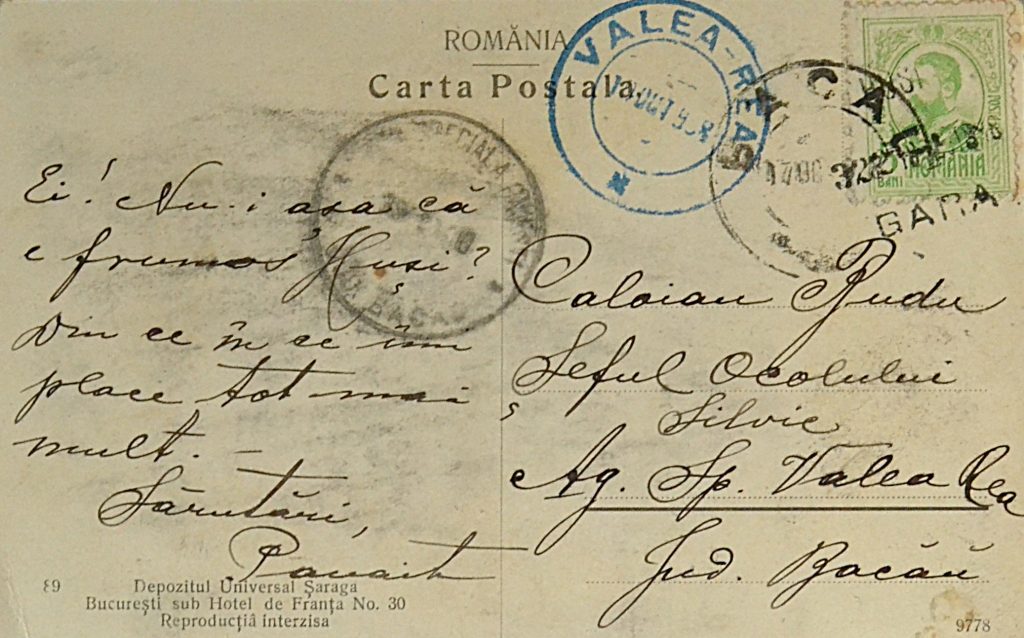 ROMÂNIA
Carta Postala.
VALEA-REA
17 OCT 908
BANI ROMÂNIA
GARA
Ei! Nu-i așa că
e frumos Huși?
Din ce în ce îmi
place tot mai
mult. —
Sărutări,
Panait
Caloian Rudu
Șeful Ocolului
Silvic
Ag. Sp. Valea Rea
Jud. Bacău
89
Depozitul Universal Șaraga
București sub Hotel de Franța No. 30
Reproducția interzisa
9778